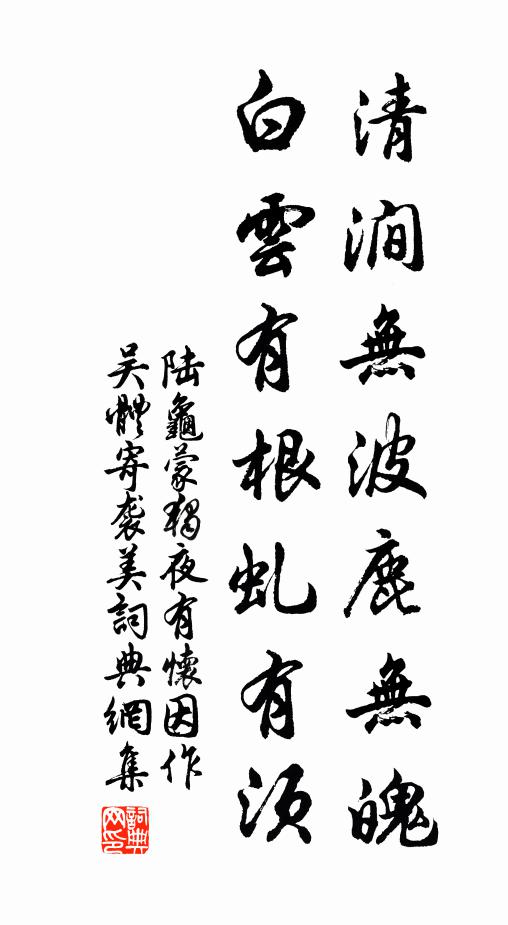 清澗無波鹿無魄
白雲有根虬有須
陸龜蒙獨夜有懷因作
吳體寄襲美詞典網集
詞典
网印